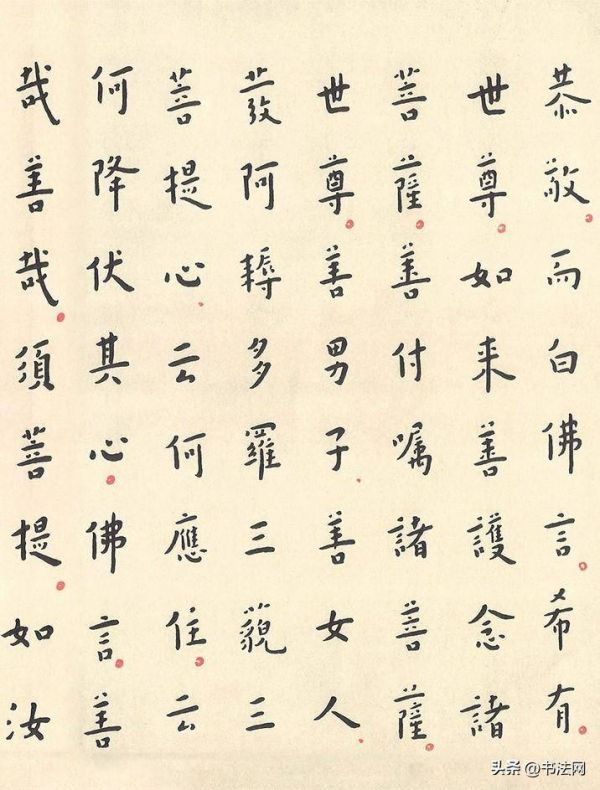 恭敬。而白佛言。希有。
世尊。如来善護念諸
菩薩。善付嘱諸菩薩。
世尊。善男子、善女人、
發阿耨多羅三藐三
菩提心、云何應住。云
何降伏其心。佛言。善
哉善哉。須菩提。如汝
头条 @书法网